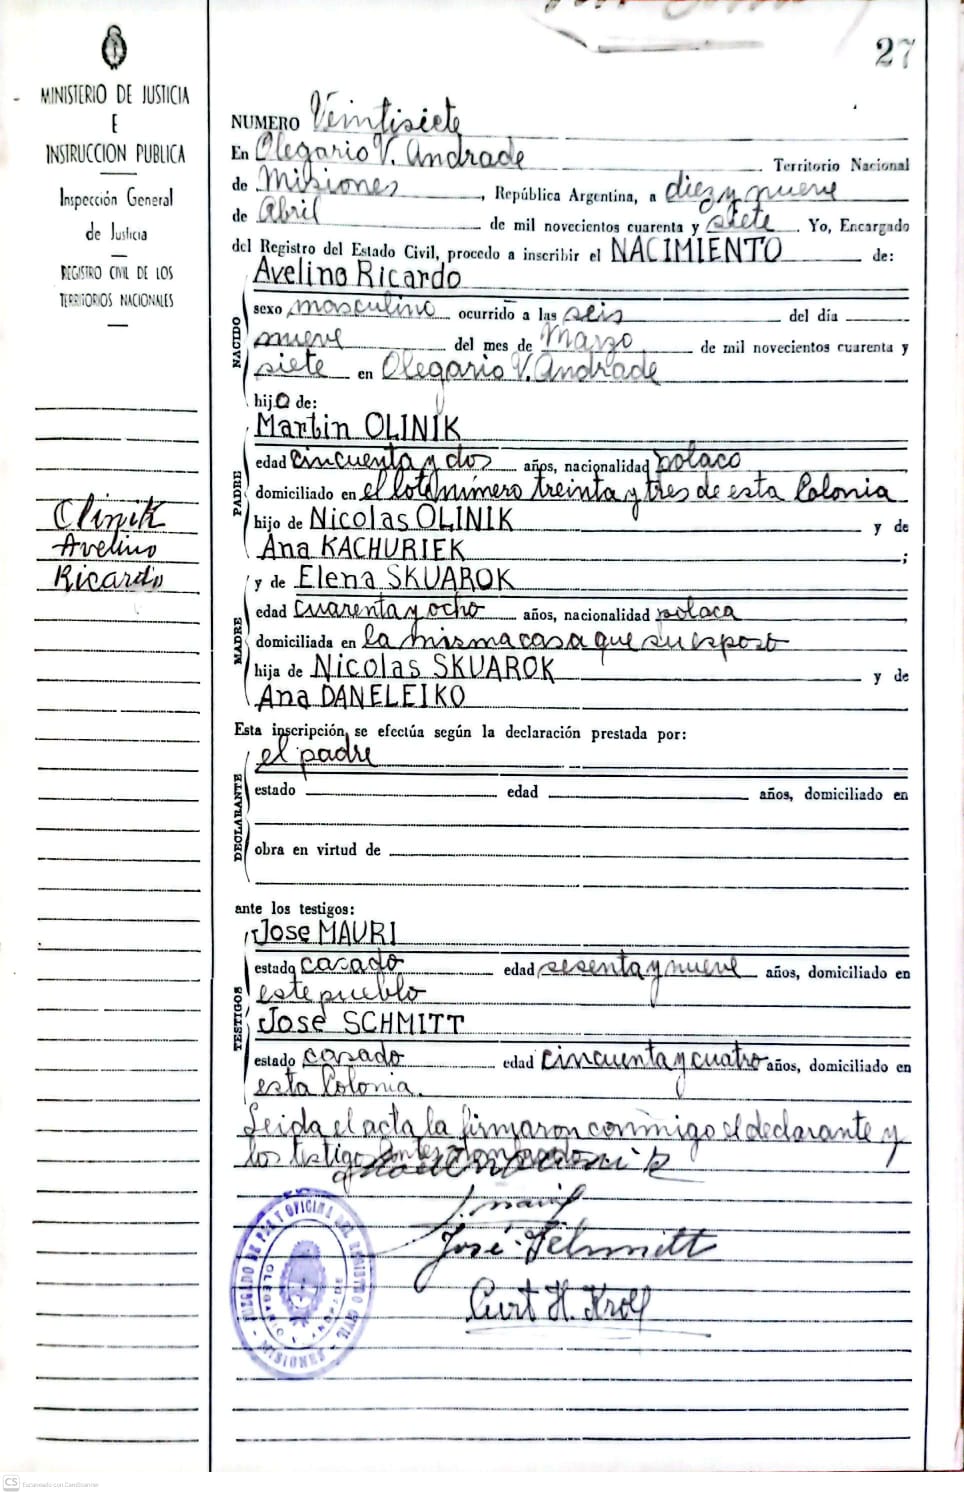 27
MINISTERIO DE JUSTICIA
E
INSTRUCCION PUBLICA
Inspección General
de Justicia
REGISTRO CIVIL DE LOS
TERRITORIOS NACIONALES
Olinik
Avelino
Ricardo
NUMERO Veintisiete
En Olegario V. Andrade Territorio Nacional
de Misiones, República Argentina, a diez y nueve
de Abril de mil novecientos cuarenta y siete. Yo, Encargado
del Registro del Estado Civil, procedo a inscribir el NACIMIENTO de:
NACIDO
Avelino Ricardo
sexo masculino ocurrido a las seis del día
nueve del mes de Marzo de mil novecientos cuarenta y
siete en Olegario V. Andrade
hijo de:
PADRE
Martin OLINIK
edad cincuenta y dos años, nacionalidad polaco
domiciliado en el lote número treinta y tres de esta Colonia
hijo de Nicolas OLINIK y de
Ana KACHURIEK ;
MADRE
y de Elena SKUAROK
edad cuarenta y ocho años, nacionalidad polaca
domiciliada en la misma casa que su esposo
hija de Nicolas SKUAROK y de
Ana DANELEIKO
Esta inscripción, se efectúa según la declaración prestada por:
DECLARANTE
el padre
estado edad años, domiciliado en
obra en virtud de
ante los testigos:
TESTIGOS
Jose MAURI
estado casado edad sesenta y nueve años, domiciliado en
este pueblo
Jose SCHMITT
estado casado edad cincuenta y cuatro años, domiciliado en
esta Colonia.
Leida el acta la firmaron conmigo el declarante y
los testigos
José Schmitt
Curt H. Kroll
JUZGADO DE PAZ Y OFICINA DEL REGISTRO CIVIL
MISIONES
CS Escaneado con CamScanner